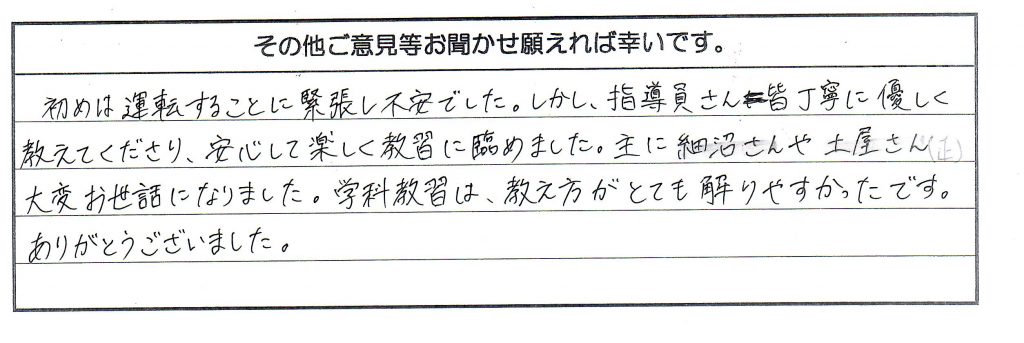 その他ご意見等お聞かせ願えれば幸いです。
初めは運転することに緊張し不安でした。しかし、指導員さん皆丁寧に優しく
教えてくださり、安心して楽しく教習に臨めました。主に細沼さんや土屋さん(正)
大変お世話になりました。学科教習は、教え方がとても解りやすかったです。
ありがとうございました。